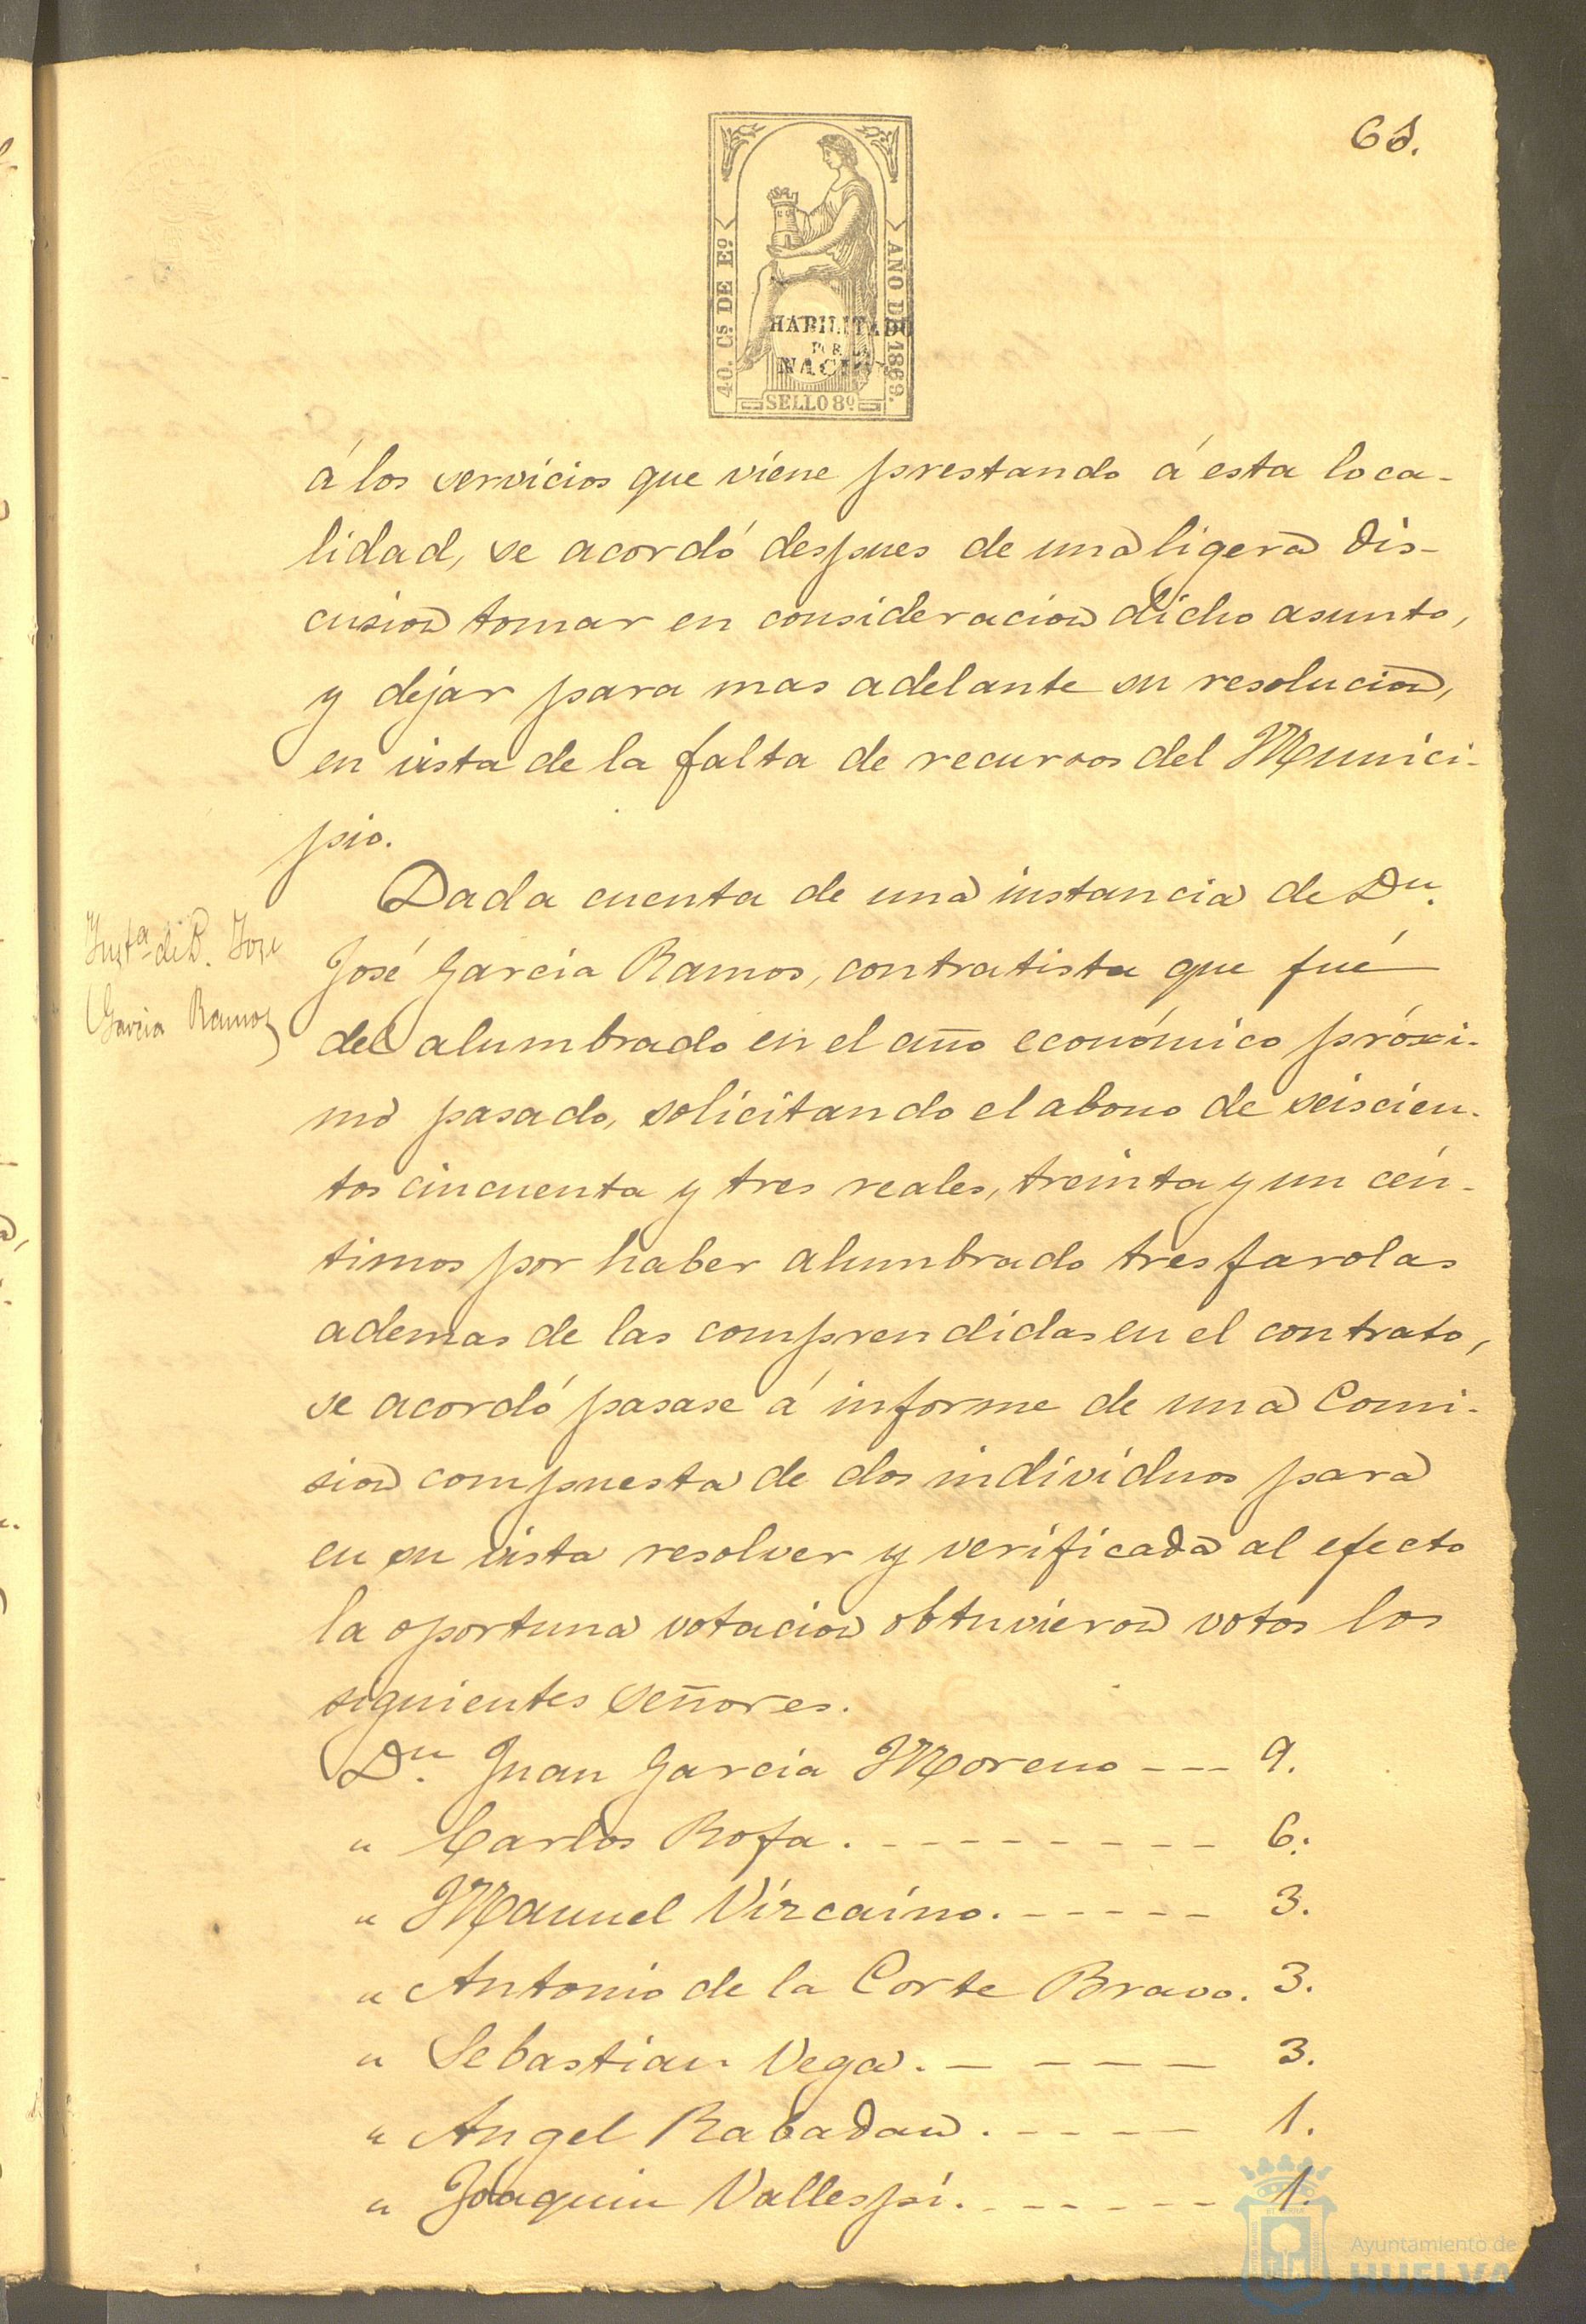 40. Cs DE Eº
AÑO DE 1869.
HABILITADO
POR LA
NACION
SELLO 8º
á los servicios que viene prestando á esta loca-
lidad, se acordó despues de una ligera dis-
cusion tomar en consideracion dicho asunto,
y dejar para mas adelante su resolucion,
en vista de la falta de recursos del Munici-
pio.
Insta. de D. Jose
Garcia Ramos
Dada cuenta de una instancia de Dn.
José Garcia Ramos, contratista que fué
del alumbrado en el año económico próxi-
mo pasado, solicitando el abono de seiscien-
tos cincuenta y tres reales, treinta y un cén-
timos por haber alumbrado tres farolas
ademas de las comprendidas en el contrato,
se acordó pasase á informe de una Comi-
sion compuesta de dos individuos para
en su vista resolver y verificada al efecto
la oportuna votacion obtuvieron votos los
siguientes señores.
Dn. Juan Garcia Moreno --- 9.
" Carlos Rofa. --------- 6.
" Manuel Vizcaino. ----- 3.
" Antonio de la Corte Bravo. 3.
" Sebastian Vega. ----- 3.
" Angel Rabadan. ---- 1.
" Joaquin Vallespí. ------ 1.
Ayuntamiento de
HUELVA